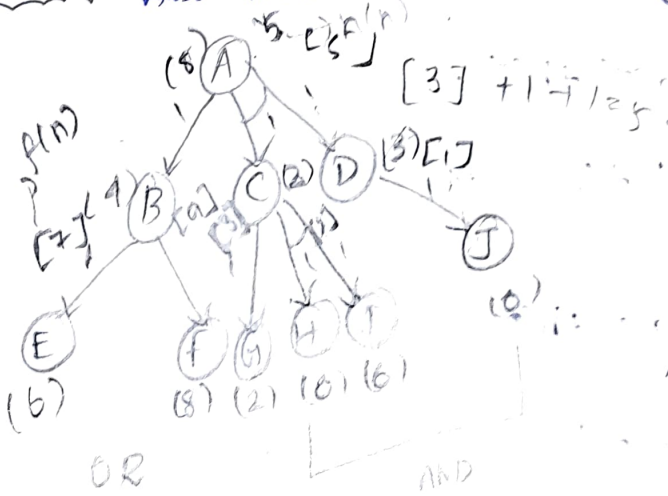 (8) A
[3] +1+1=5
f(n)
[7] (4) B [9] [3] C (2) D (3) [1]
1 1 1
J
(0)
E F G H I
(6) (8) (2) (0) (6)
OR AND